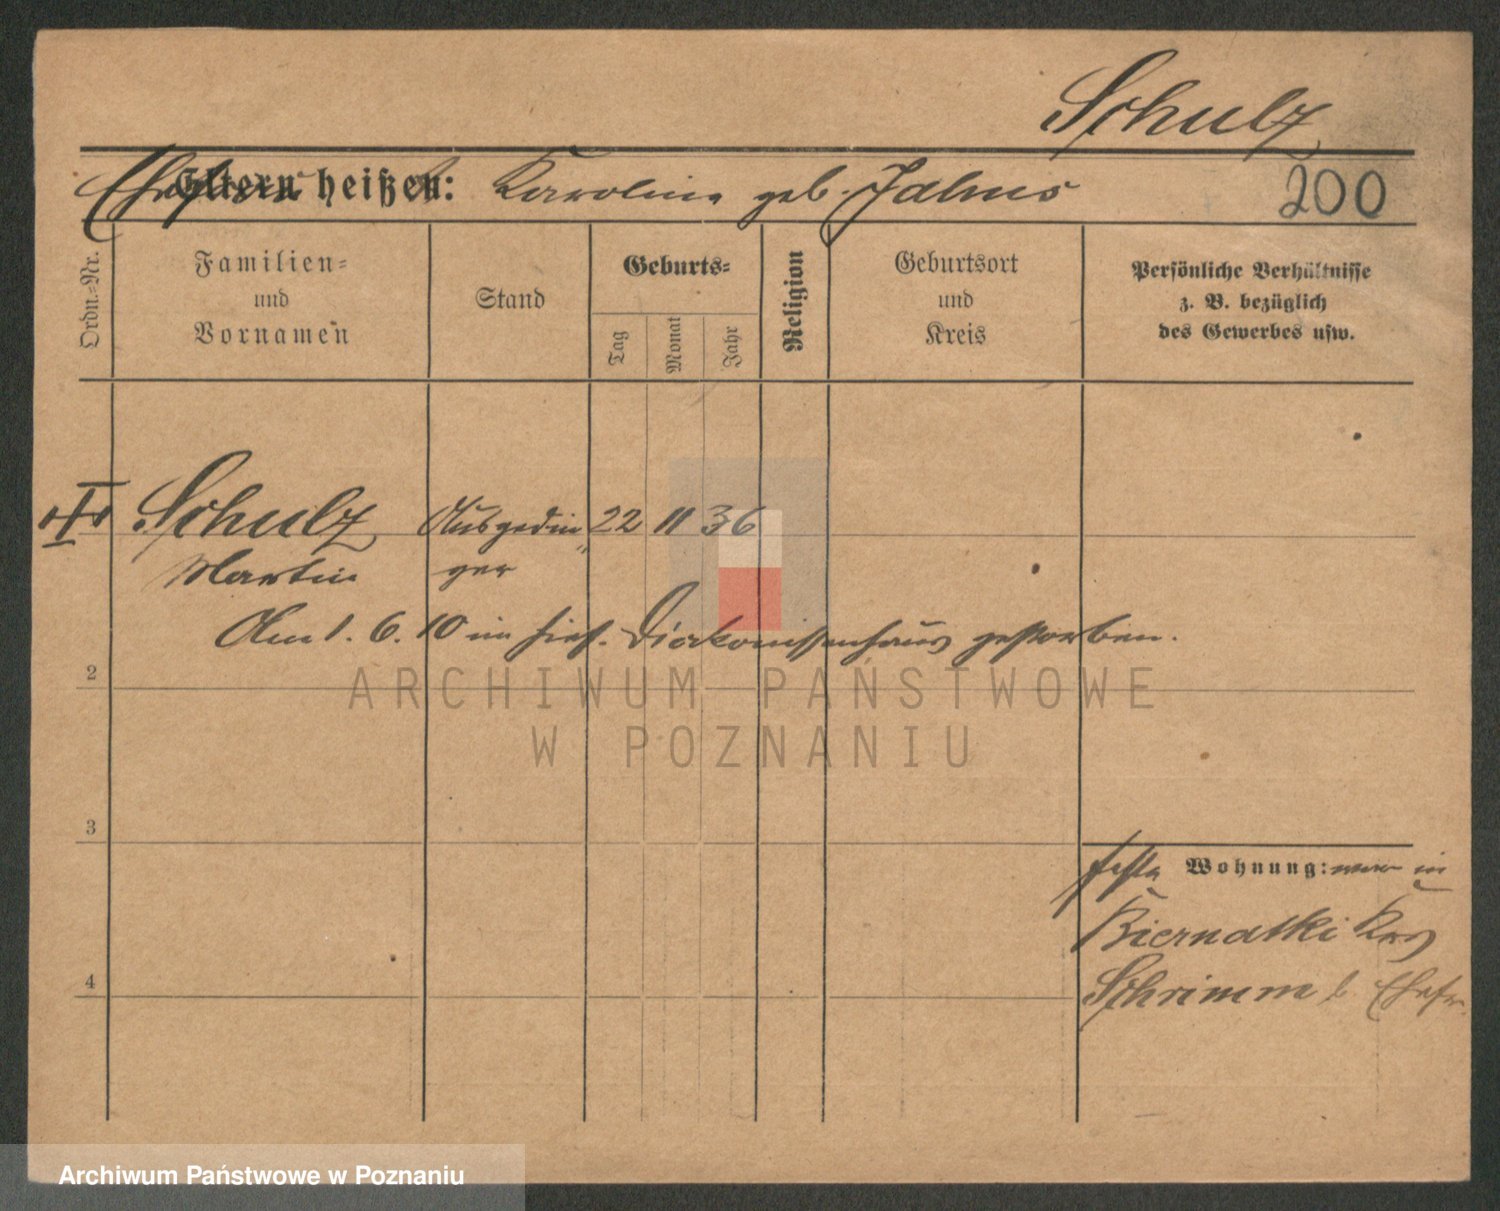 Schulz
Ehefrau Eltern heißen: Karoline geb. Jahns
200
Ordn.=Nr.
Familien=
und
Vornamen
Stand
Geburts=
Tag
Monat
Jahr
Religion
Geburtsort
und
Kreis
Persönliche Verhältnisse
z. B. bezüglich
des Gewerbes usw.
Schulz Ausgedin 22 11 36
Martin ger
Am 1. 6. 10 im hies. Diakonissenhaus gestorben.
2
ARCHIWUM PAŃSTWOWE
W POZNANIU
3
feste Wohnung: war in
Biernatki Krs
4
Schrimm b. Ehefr.
Archiwum Państwowe w Poznaniu